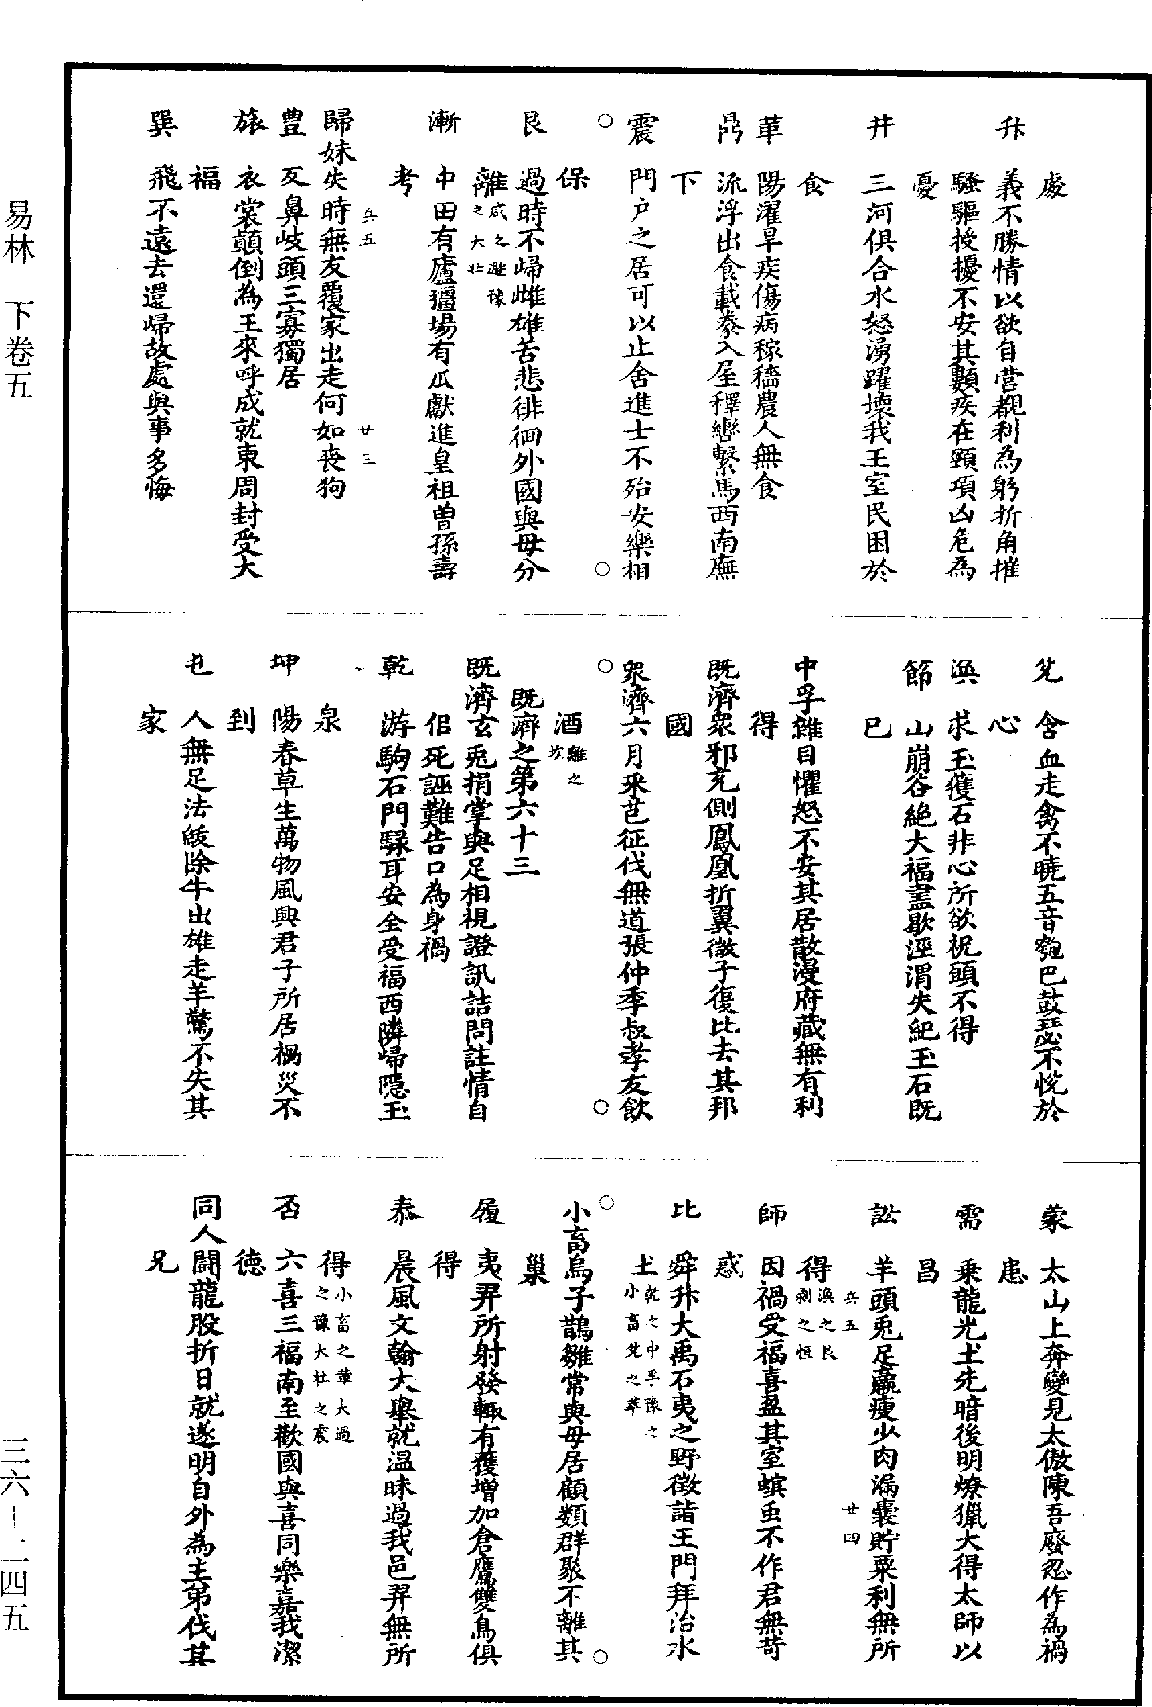 處
升 義不勝情以欲自營覩利為躬折角摧
騷驅擾不安其顆疾在頸項凶危為
憂
井 三河俱合水怒湧躍壞我王室民困於
食
革 陽濯旱疾傷病稼穡農人無食
鼎 流浮出食載豢入屋釋轡繫馬西南廡
下
○震 門户之居可以止舍進士不殆安樂相○
保
艮 過時不歸雌雄苦悲徘徊外國與母分
離咸之遯豫之大壯
漸 中田有廬疆場有瓜獻進皇祖曾孫壽
考
兵五 廿三
歸妹失時無友覆家出走何如喪狗
豊 叐鼻岐頭三寡獨居
旅 衣裳顛倒為王來呼成就東周封受大
福
巽 飛不遠去還歸故處與事多悔
兌 含血走禽不曉五音匏巴鼓瑟不悅於
心
渙 求玉獲石非心所欲祝頭不得
節 山崩谷絕大福盡歇涇渭失紀玉石既
已
中孚雖目懼怒不安其居散漫府藏無有利
得
既濟眾邪充側鳳凰折翼微子復比去其邦
國
○眾濟六月采芑征伐無道張仲季叔孝友飲○
酒離之坎
既濟之第六十三
既濟玄兎捐掌與足相視證訊詰問註情自
伹死誣難告口為身禍
乾 游駒石門騄耳安全受福西隣歸隱玉
泉
坤 陽春草生萬物風興君子所居禍災不
到
屯 人無足法皈除牛出雄走羊驚不失其
家
蒙 太山上奔變見太傲陳吾廢忽作為禍
患
需 乗龍光土先暗後明燎獵大得太師以
昌
兵五 廿四
訟 羊頭兎足羸瘦少肉漏囊貯粟利無所
得渙之艮剥之恒
師 因禍受福喜盈其室螟虫不作君無苛
惑
比 舜升大禹石夷之野徵詣王門拜治水
土乾之中孚豫之小畜兌之革
○小畜烏子鵲雛常與母居顧類群聚不離其○
巢
履 夷羿所射發輙有獲增加倉鷹雙鳥俱
得
泰 晨風文翰大舉就温昧過我邑羿無所
得小畜之革大過之豫大壯之震
否 六喜三福南至歡國與喜同樂嘉我潔
德
同人鬪龍股折日就遂明自外為主弟伐其
兄
易林 下卷五
三六－二四五